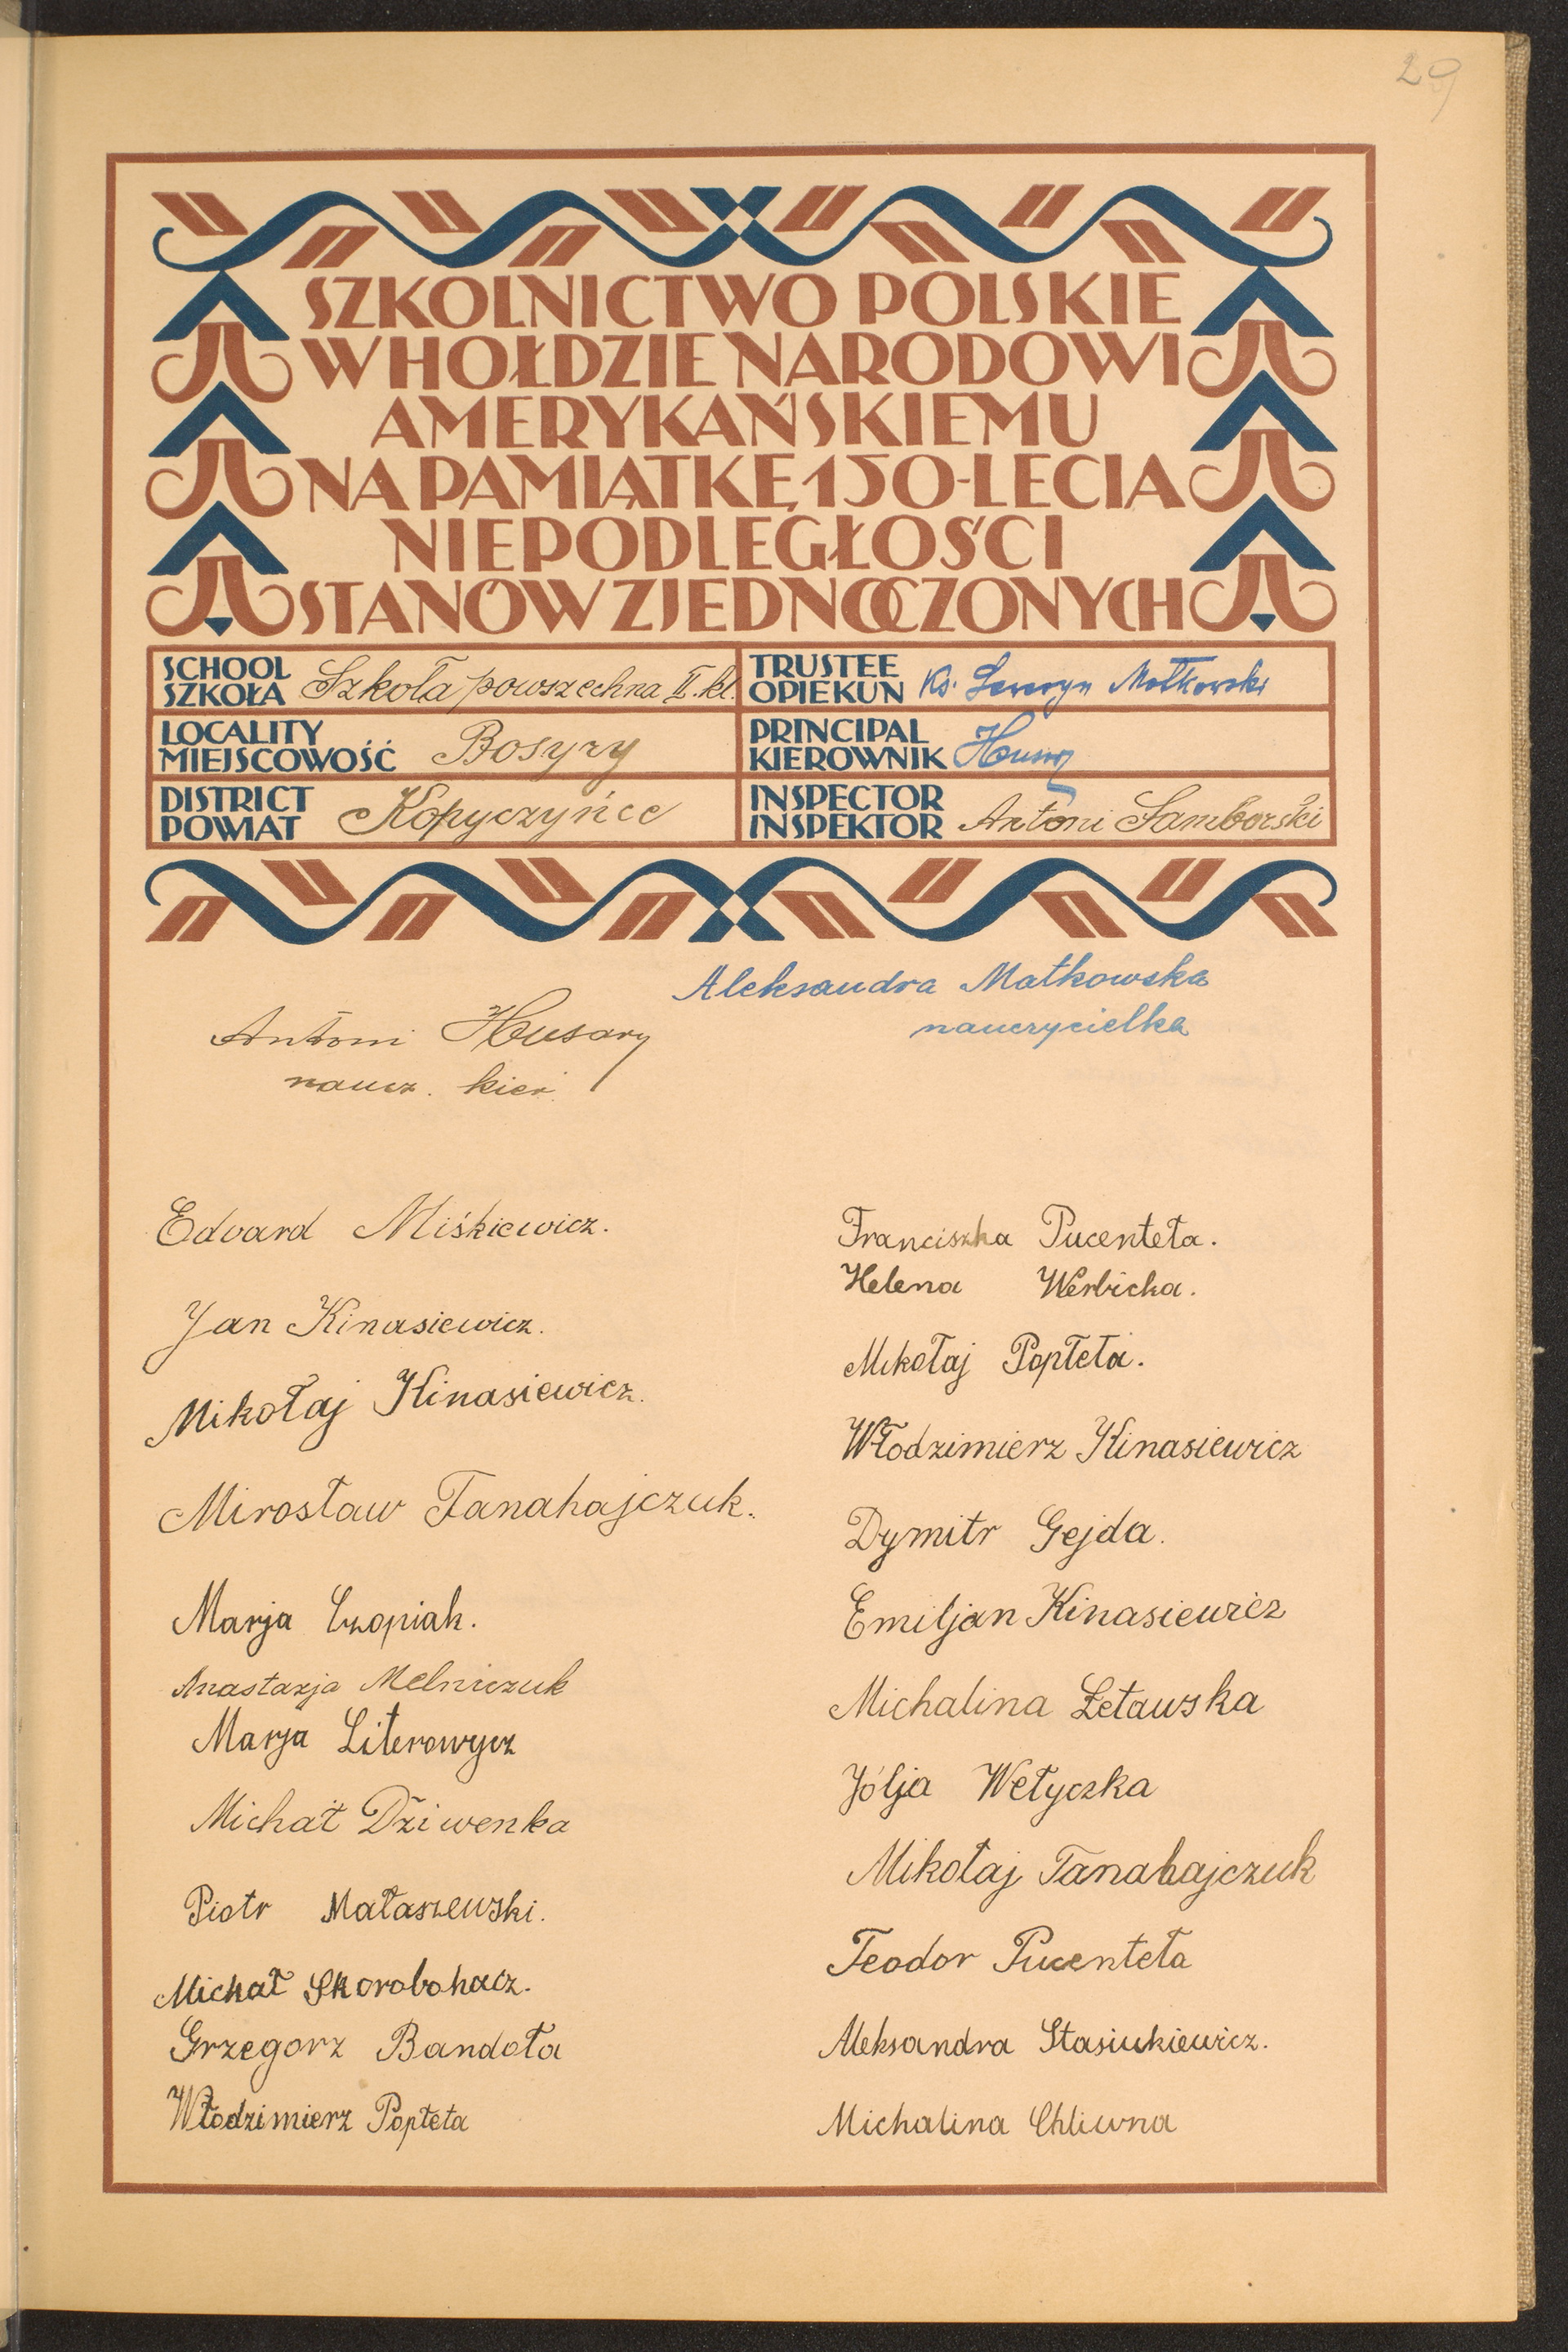 29
SZKOLNICTWO POLSKIE
W HOŁDZIE NARODOWI
AMERYKAŃSKIEMU
NA PAMIĄTKĘ 150-LECIA
NIEPODLEGŁOŚCI
STANÓW ZJEDNOCZONYCH
SCHOOL
SZKOŁA Szkoła powszechna II. kl.
LOCALITY
MIEJSCOWOŚĆ Bosyry
DISTRICT
POWIAT Kopyczyńce
TRUSTEE
OPIEKUN Ks. Seweryn Matkowski
PRINCIPAL
KIEROWNIK
INSPECTOR
INSPEKTOR Antoni Samborski
Antoni Husary
naucz. kier.
Aleksandra Matkowska
nauczycielka
Edward Miśkiewicz.
Jan Kinasiewicz.
Mikołaj Kinasiewicz.
Mirosław Tanahajczuk.
Marja Czopiak.
Anastazja Melniczuk
Marja Literowycz
Michał Dziwenka
Piotr Małaszewski.
Michał Skorobohacz.
Grzegorz Bandoła
Włodzimierz Popteta
Franciszka Pucenteła.
Helena Werbicka.
Mikołaj Popteła.
Włodzimierz Kinasiewicz
Dymitr Gejda.
Emiljan Kinasiewicz
Michalina Łetawska
Jólja Wełyczka
Mikołaj Tanahajczuk
Teodor Pucenteła
Aleksandra Stasiukiewicz.
Michalina Chliwna